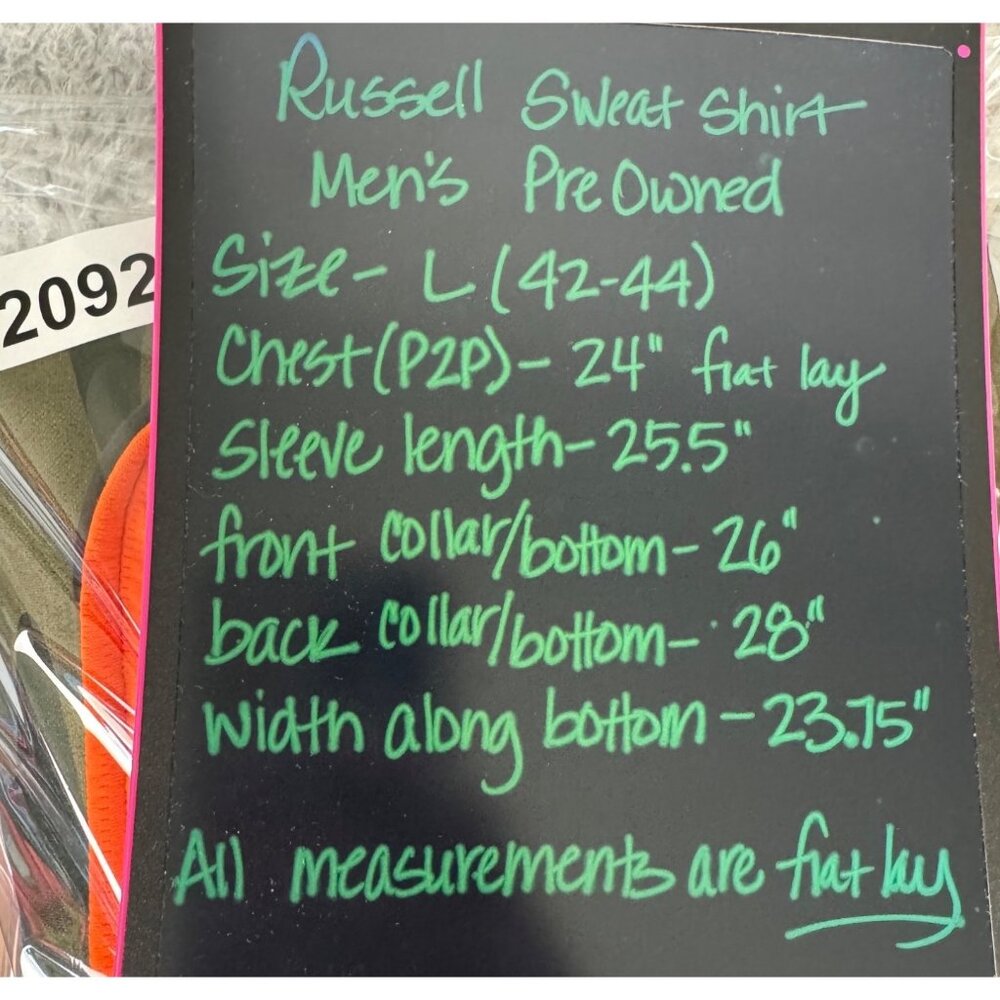 Russell Sweat Shirt
Men's Pre Owned
Size- L (42-44)
Chest (P2P)- 24" flat lay
Sleeve length- 25.5"
front collar/bottom- 26"
back collar/bottom- 28"
width along bottom - 23.75"
All measurements are flat lay
2092